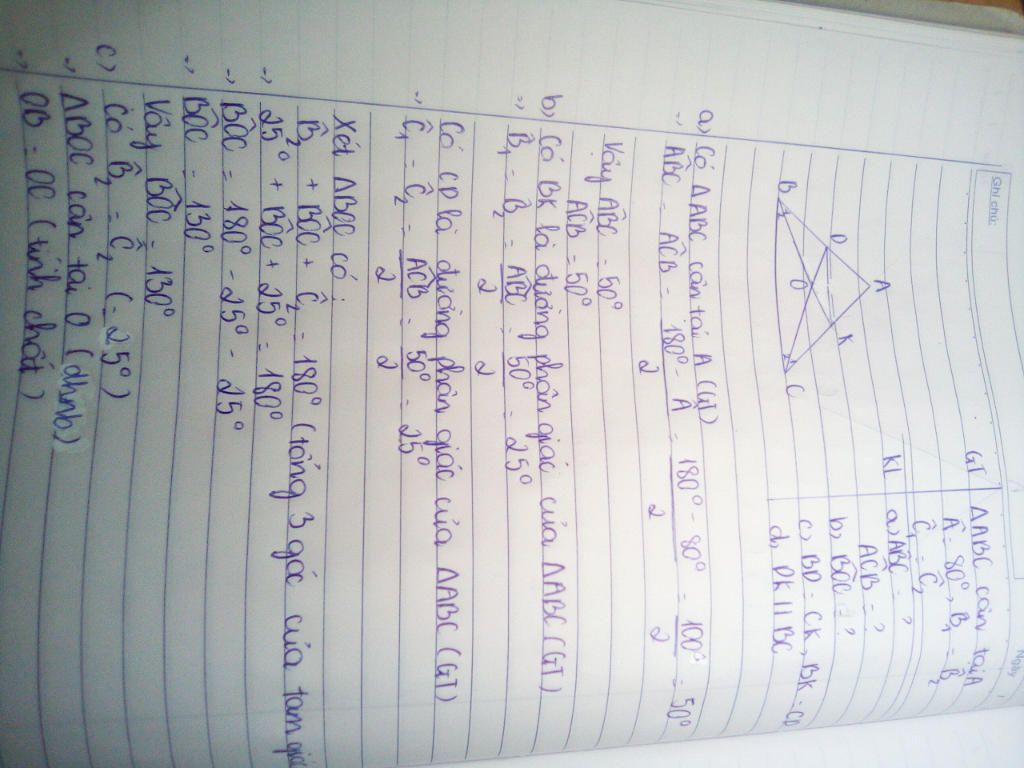 Ghi chú:
Ngày
GT ΔABC cân tại A
Â = 80°, B̂₁ = B̂₂
Ĉ₁ = Ĉ₂
KL a) ABĈ = ?
AĈB = ?
b) BÔC = ?
c) BD = CK, BK = CD
d, DK // BC
A
D K
O
B C
a) Có ΔABC cân tại A (GT)
→ AB̂C = AĈB = (180° - Â)/2 = (180° - 80°)/2 = 100°/2 = 50°
Vậy AB̂C = 50°
AĈB = 50°
b) Có BK là đường phân giác của ΔABC (GT)
→ B̂₁ = B̂₂ = AB̂C/2 = 50°/2 = 25°
Có CD là đường phân giác của ΔABC (GT)
→ Ĉ₁ = Ĉ₂ = AĈB/2 = 50°/2 = 25°
Xét ΔBOC có:
B̂₂ + BÔC + Ĉ₂ = 180° (tổng 3 góc của tam giác
→ 25° + BÔC + 25° = 180°
→ BÔC = 180° - 25° - 25°
→ BÔC = 130°
Vậy BÔC = 130°
c) Có B̂₂ = Ĉ₂ (= 25°)
→ ΔBOC cân tại O (dhnb)
→ OB = OC (tính chất)